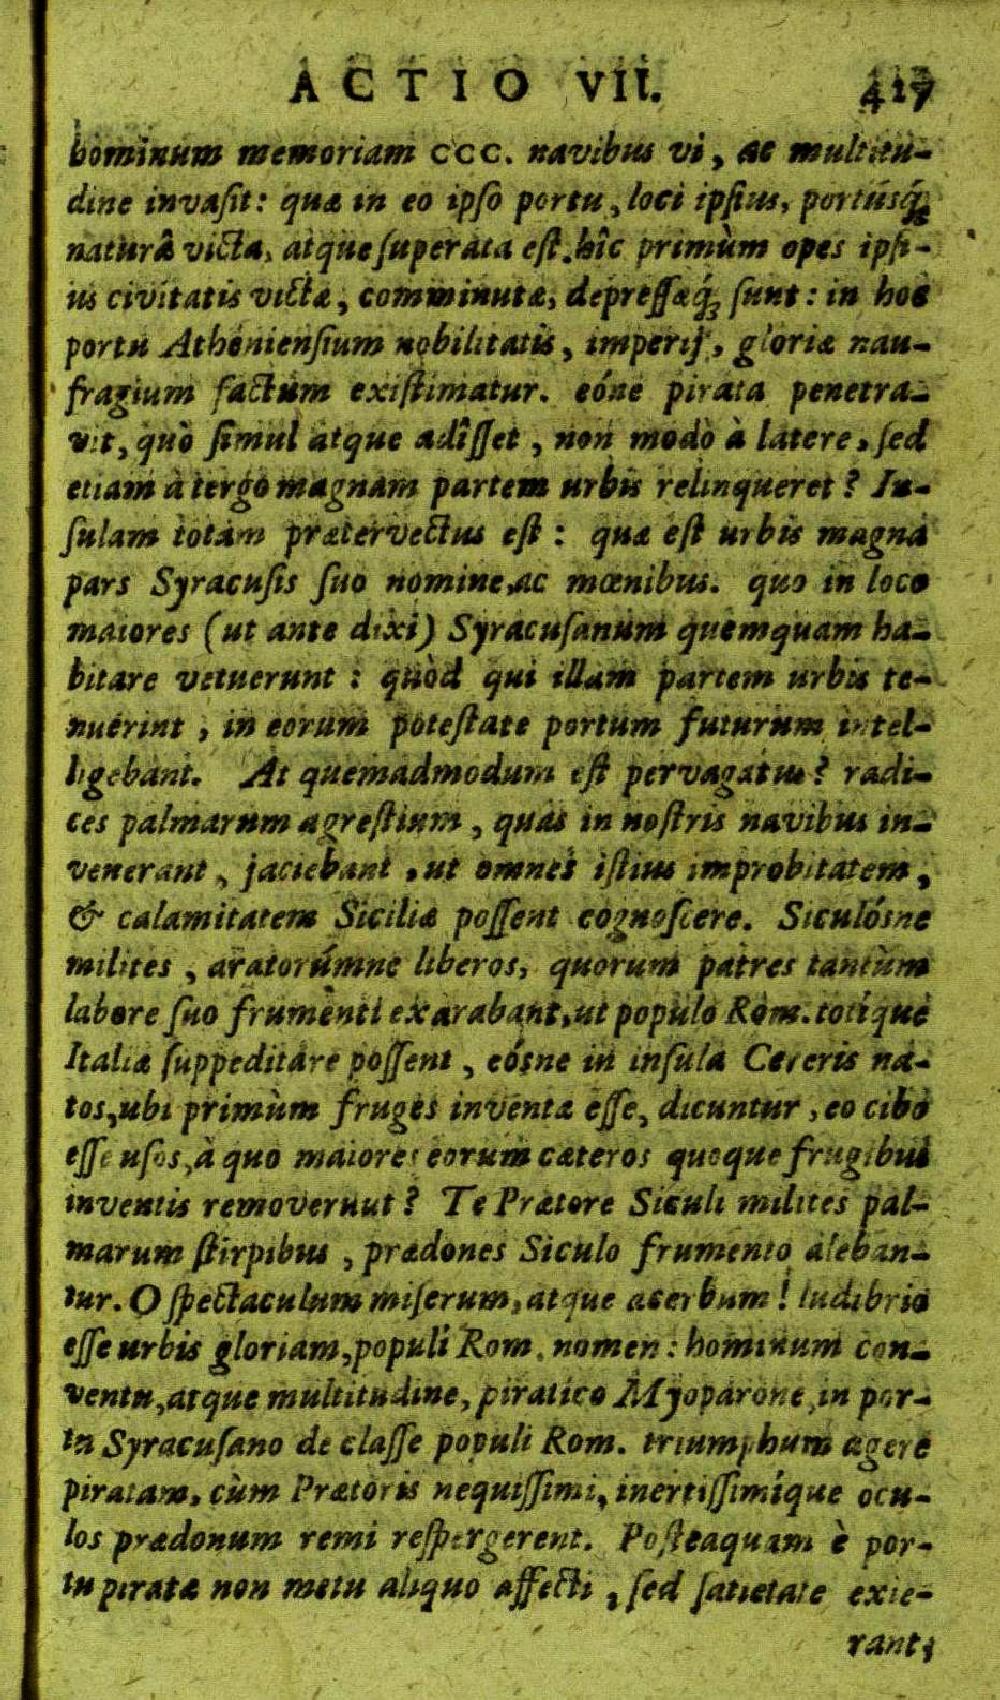 ACTIO VII. 417
hominum memoriam CCC. navibus vi, ac multitu-
dine invasit: quæ in eo ipso portu, loci ipsius, portúsq;
naturâ victa, atque superata est. hîc primùm opes ipsi-
us civitatis victæ, comminutæ, depressæq́; sunt: in hoc
portu Atheniensium nobilitatis, imperij, gloriæ nau-
fragium factum existimatur. eóne pirata penetra-
vit, quò simul atque adîsset, non modo à latere, sed
etiam à tergo magnam partem urbis relinqueret? In-
sulam totam prætervectus est: quæ est urbis magna
pars Syracusis suo nomine, ac mœnibus. quo in loco
maiores (ut ante dixi) Syracusanum quemquam ha-
bitare vetuerunt: quòd qui illam partem urbis te-
nuerint, in eorum potestate portum futurum intel-
ligebant. At quemadmodum est pervagatus? radi-
ces palmarum agrestium, quas in nostris navibus in-
venerant, jaciebant, ut omnes istius improbitatem,
& calamitatem Siciliæ possent cognoscere. Siculósne
milites, aratorúmne liberos, quorum patres tantùm
labore suo frumenti exarabant, ut populo Rom. totíque
Italiæ suppeditare possent, eósne in insula Cereris na-
tos, ubi primùm fruges inventæ esse, dicuntur, eo cibo
esse usos, à quo maiores eorum cæteros quoque frugibus
inventis removerunt? Te Prætore Siculi milites pal-
marum stirpibus, prædones Siculo frumento aleban-
tur. O spectaculum miserum, atque acerbum! ludibrio
esse urbis gloriam, populi Rom. nomen: hominum con-
ventu, atque multitudine, piratico Myoparone, in por-
tu Syracusano de classe populi Rom. triumphum agere
piratam, cùm Prætoris nequissimi, inertissimíque ocu-
los prædonum remi respergerent. Posteaquam è por-
tu piratæ non metu aliquo affecti, sed satietate exie-
rant;